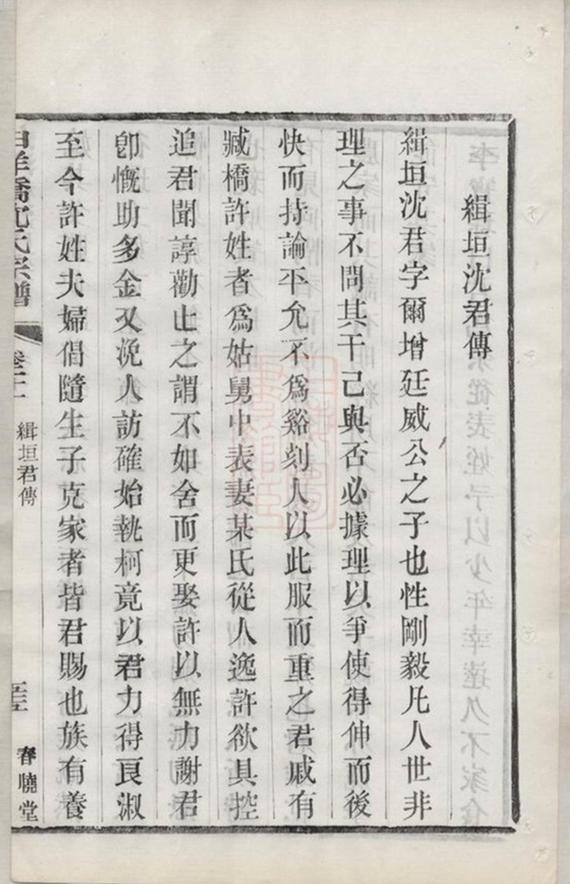 緝垣沈君傳
緝垣沈君字爾增廷威公之子也性剛毅凡人世非
理之事不問其干己與否必據理以爭使得伸而後
快而持論平允不為谿刻人以此服而重之君戚有
臧橋許姓者為姑舅中表妻某氏從人逸許欲具控
追君聞諄勸止之謂不如舍而更娶許以無力謝君
卽慨助多金又浼人訪確始執柯竟以君力得良淑
至今許姓夫婦倡隨生子克家者皆君賜也族有養
沈氏宗譜
緝垣君傳
春曉堂